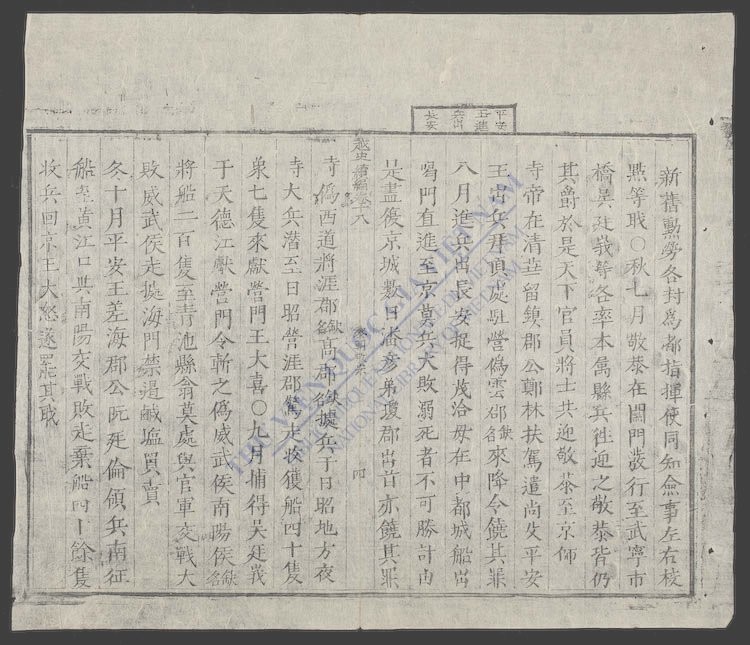 平安
王進
兵出
長安
新舊勳勞各封爲都指揮使同知僉事左右校
㸃等职○秋七月敬恭在閣門發行至武寧市
橋吳廷峩等各率本属縣兵徃迎之敬恭皆仍
其爵於是天下官員將士共迎敬恭至京师
寺帝在清華留鎮郡公鄭林扶駕遣尚父平安
王出兵 頂處駐營僞雲郡名缺來降令饒其罪
八月進兵出長安捉得茂洽母在中都城船出
喝門直進至京莫兵大敗溺死者不可勝計由
是盡復京城数日潘彥弟瓊郡出首亦饒其罪
越史續編卷八 四
寺僞西道將涯郡名缺高郡名缺據兵于日昭地方夜
寺大兵潛至日昭營涯郡驚走收獲船四十隻
象七隻來獻營門王大喜○九月捕得吳廷峩
于天德江獻營門令斬之僞威武侯南陽侯名缺
將船二百隻至青池縣翁莫處與官軍交戰大
敗威武侯走據海門禁遏鹹塩買賣
冬十月平安王差海郡公阮廷倫領兵南征
船至黃江口與南陽交戰敗走棄船四十餘隻
收兵回京王大怒遂罷其职
THƯ VIỆN QUỐC GIA VIỆT NAM
BIBLIOTHÈQUE NATIONALE DU VIETNAM
NATIONAL LIBRARY OF VIETNAM